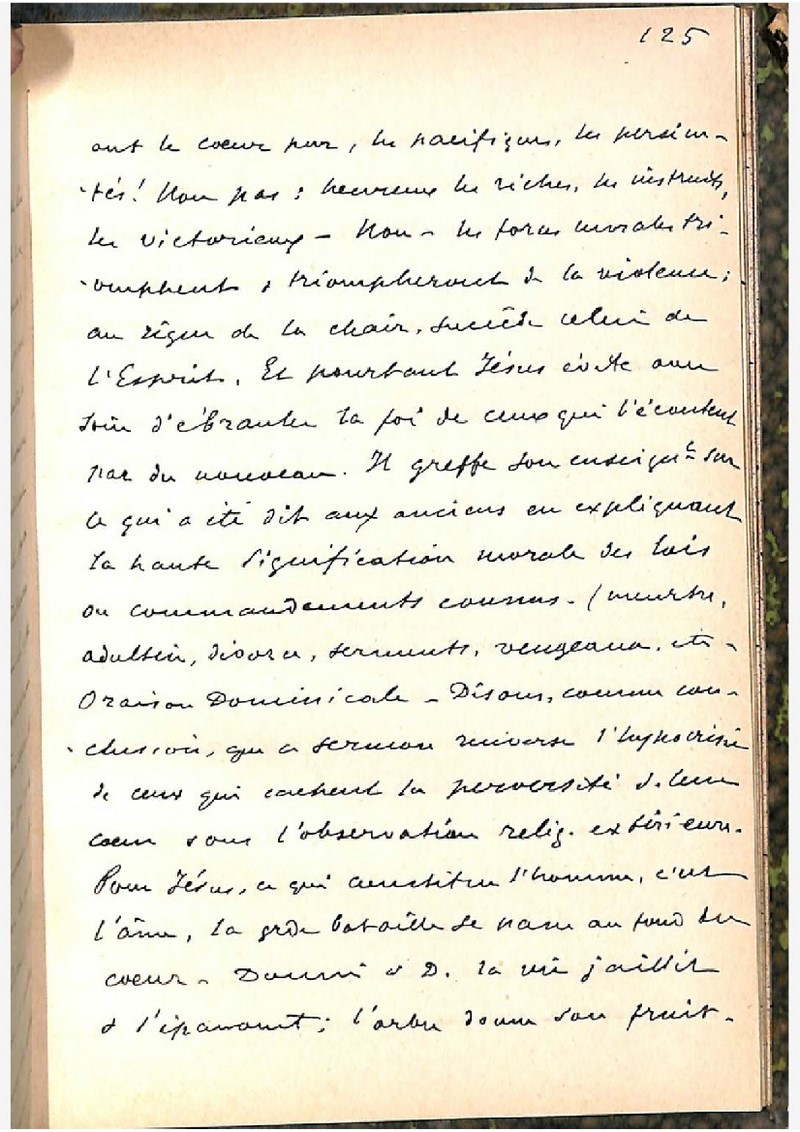 125
ont le coeur pur, les pacifiques, les persécu-
-tés! Non pas: heureux les riches, les instruits,
les victorieux – Non – les forces morales tri-
-omphent & triompheront de la violence;
au règne de la chair, succède celui de
l'Esprit. Et pourtant Jésus évite avec
soin d'ébranler la foi de ceux qui l'écoutent
par du nouveau. Il greffe son enseignt sur
ce qui a été dit aux anciens en expliquant
la haute signification morale des lois
ou commandements connus. (meurtre,
adultère, divorce, serments, vengeance, etc –
Oraison Dominicale – Disons, comme con-
-clusion, que ce sermon renverse l'hypocrisie
de ceux qui cachent la perversité de leur
coeur sous l'observation relig. extérieure.
Pour Jésus, ce qui constitue l'homme, c'est
l'âme, la grde bataille se passe au fond du
coeur – Donné à D. la vie jaillit
& s'épanouit; l'arbre donne son fruit –